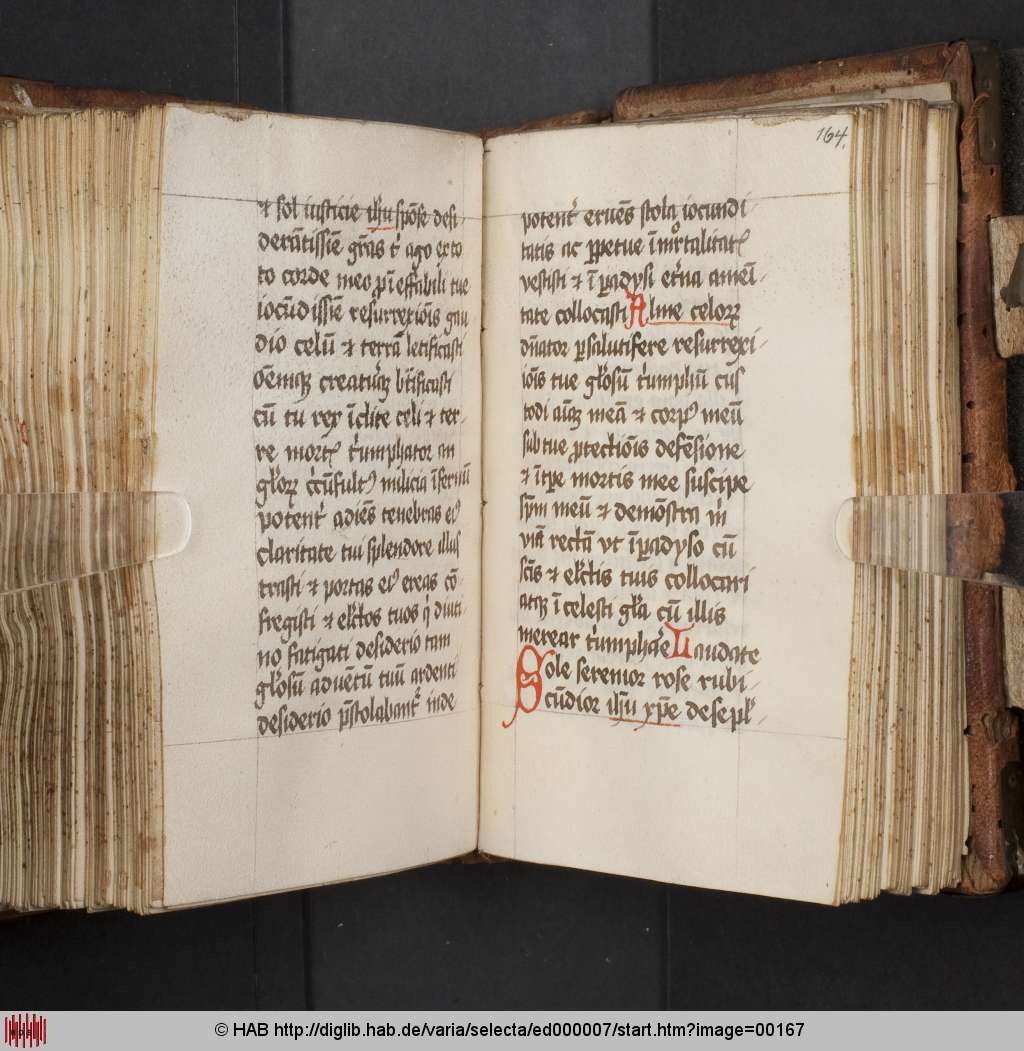 et sol iusticie ih̄u spōse desi
derātissīe gr̄as t̄ ago ex to
to corde meo ꝓ īeffabili tue
iocūdissīe resurrexiōis gau
dio celū et terrā letificasti
oēmqꝫ creatur̄qꝫ bt̄ificasti
cū tu rex īclite celi et ter
re mort᷒ t̓umphator an
gl̓oꝝ cc̓ūfult᷒ milicia īfernū
potent̓ adiēs tenebras ei᷒
claritate tui splendore illus
trasti et portas ei᷒ ereas cō
fregisti et elc̄tos tuos q̓ diuti
no fatigati desiderio tam
gl̓osū aduētū tuū ardenti
desiderio p̄stolabant̓ inde
164.
potent̓ eruēs stola iocundi
tatis ac ꝑpetue īmōrtalitat᷒
vestisti et ī ꝑadysi et̓na amēi
tate collocasti Alme celoꝝ
dn̄ator ꝑ salutifere resurrexi
iōis tue gl̓osū t̓umphū cus̄
todi aīaꝫ meā et corp᷒ meū
sub tue ꝓtectiōis defēsione
et ī tꝑe mortis mee suscipe
sp̄m meū et demōstra m̓
viā rectā vt ī ꝑadyso cū
sc̄is et elc̄tis tuis collocari
atqꝫ ī celesti gl̓a cū illis
merear t̓umphar̄e Laudate
Sole serenior rose rubi
cūdior ih̄u xp̄e de sepl̓
© HAB http://diglib.hab.de/varia/selecta/ed000007/start.htm?image=00167